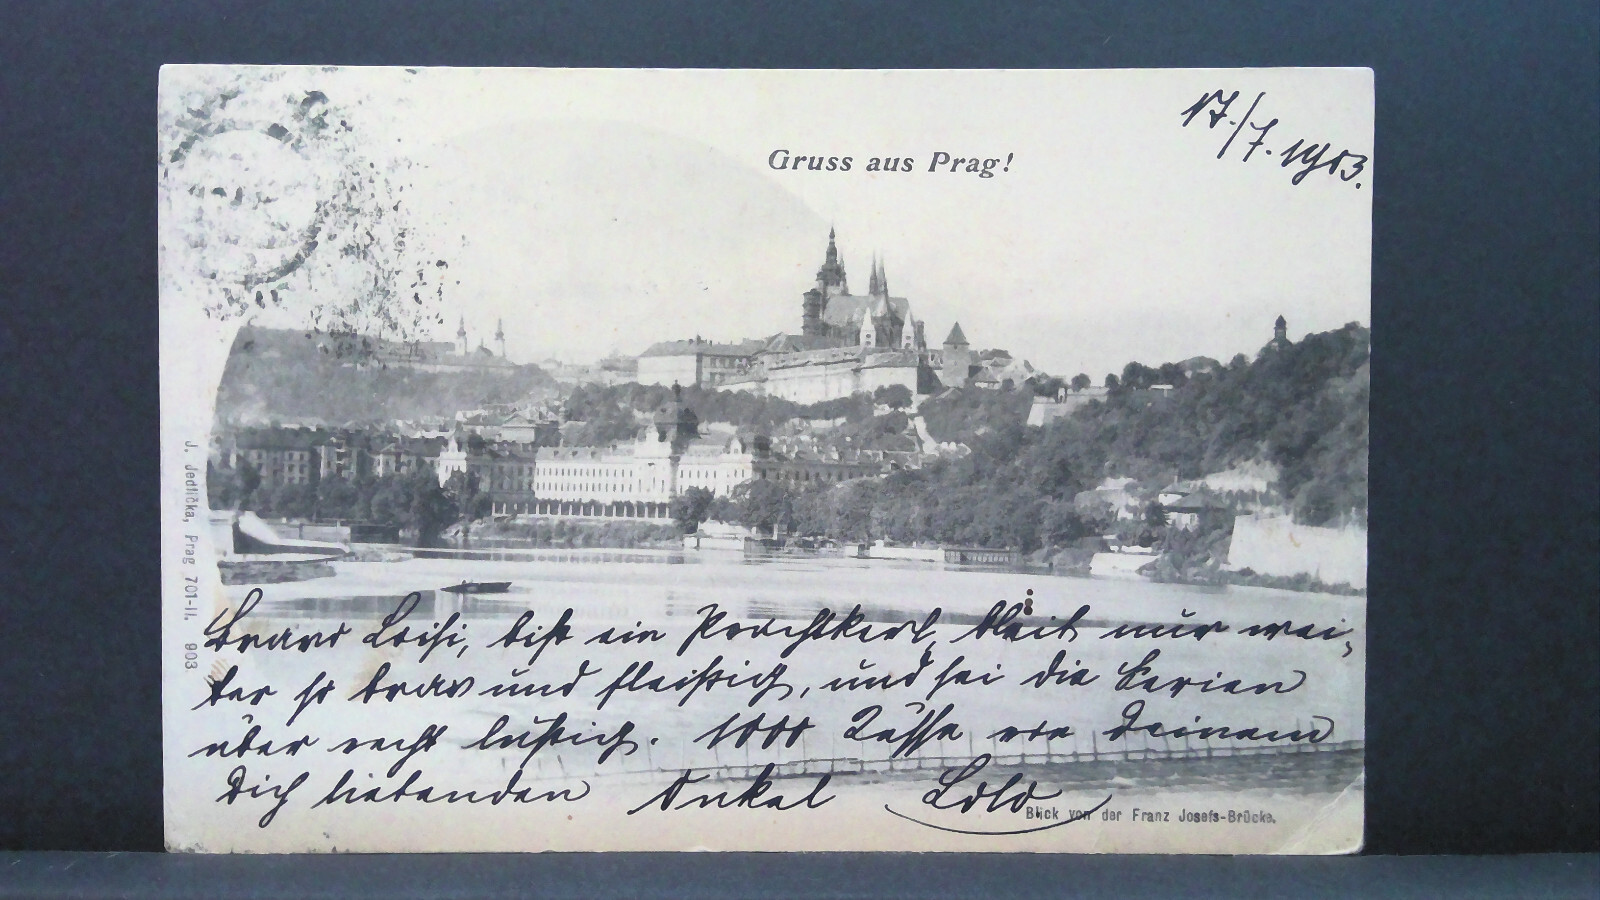 17./7. 1903.
Gruss aus Prag!
J. Jedlička, Prag 701-II. 903
Bravo Loisi, bist ein Prachtkerl, bleib nur wei-
ter so brav und fleißig, und sei die Ferien
über recht lustig. 1000 Küsse von Deinem
Dich liebenden Onkel Lolo
Blick von der Franz Josefs-Brücke.